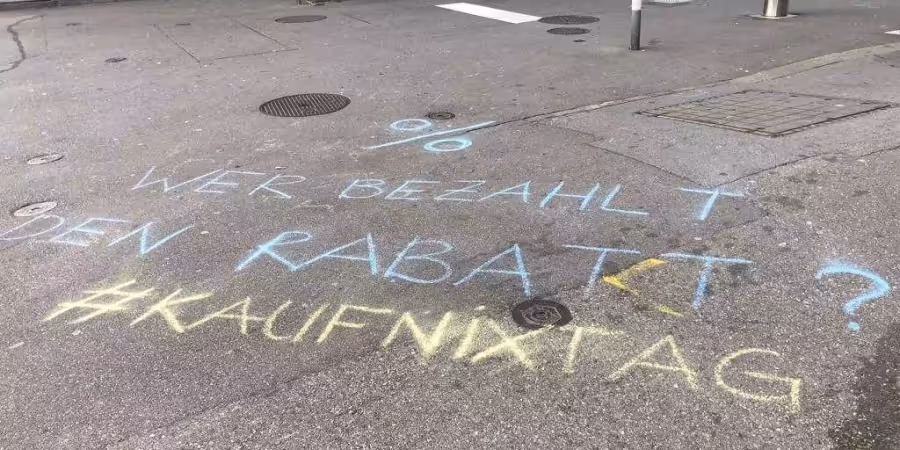 %
WER BEZAHLT
DEN RABATT?
#KAUFNIXTAG